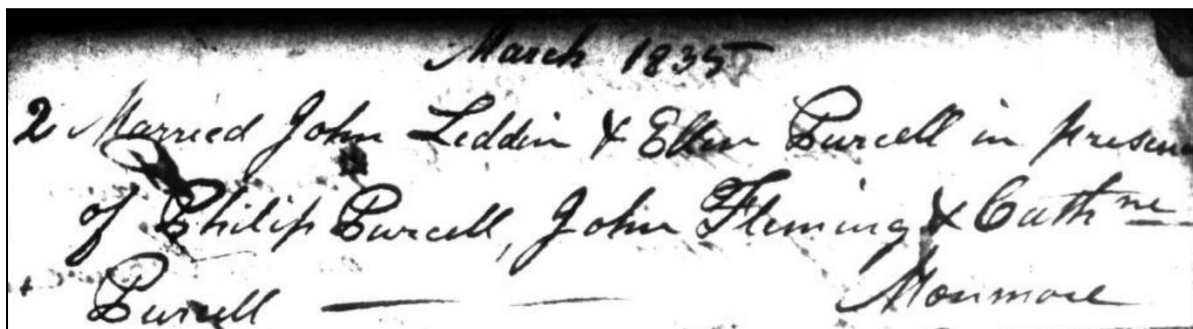 March 1835
2 Married John Leddin & Ellen Purcell in presen
of Philip Purcell, John Fleming & Cathne
Purcell —— Monmore